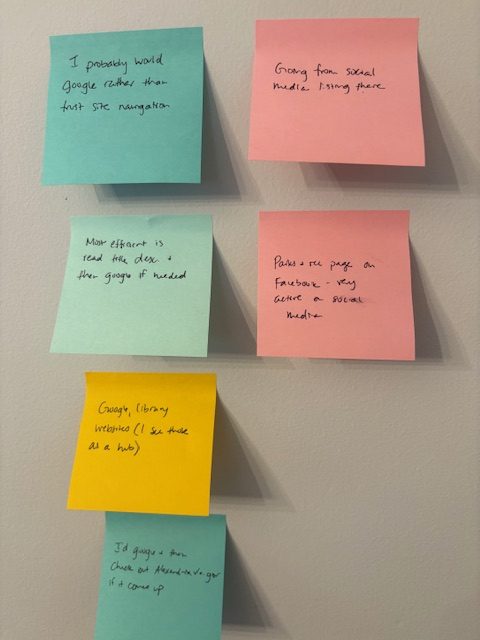 I probably would
Google rather than
trust site navigation
Going from social
media listing there
Most efficient is
read title desc +
then google if needed
Parks + rec page on
Facebook - very
active on social
media
Google, library
websites (I see those
as a hub)
I'd google + then
check out Alexandriava.gov
if it comes up